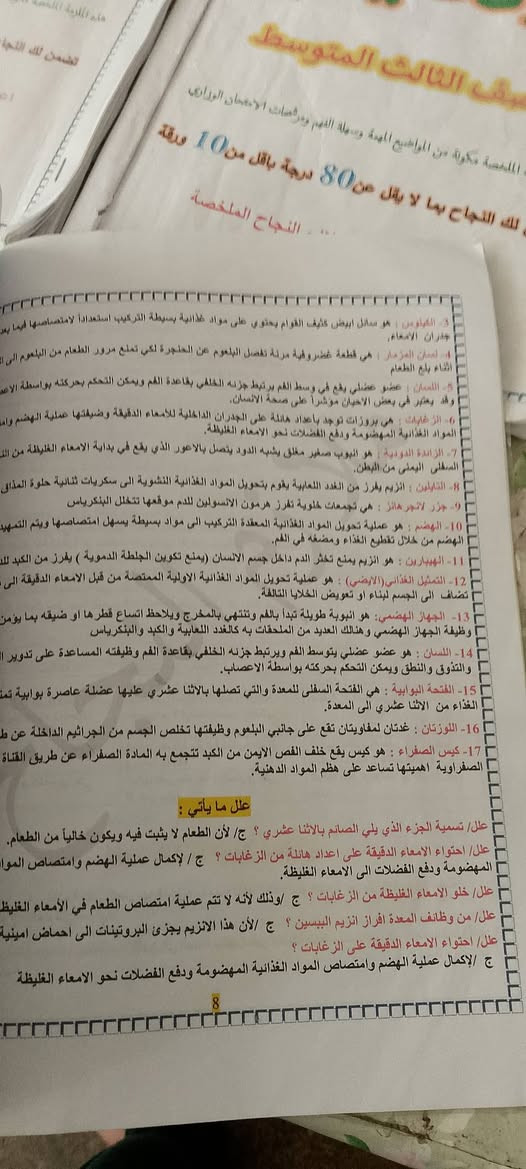 تضمن لك النجاح
الصف الثالث المتوسط
الملخصة مكونة من المواضيع المهمة وسهلة الفهم ومرشحات الامتحان الوزاري
لك النجاح بما لا يقل عن 80 درجة بأقل من 10 ورقة
النجاح الملخصة
3- الكيلوس : هو سائل ابيض كثيف القوام يحتوي على مواد غذائية بسيطة التركيب استعداداً لامتصاصها فيما بعد
جدران الامعاء.
4- لسان المزمار : هي قطعة غضروفية مرنة تفصل البلعوم عن الحنجرة لكي تمنع مرور الطعام من البلعوم الى
اثناء بلع الطعام
5- اللسان : عضو عضلي يقع في وسط الفم يرتبط جزئه الخلفي بقاعدة الفم ويمكن التحكم بحركته بواسطة
وقد يعتبر في بعض الاحيان مؤشراً على صحة الانسان.
6- الزغابات : هي بروزات توجد بأعداد هائلة على الجدران الداخلية للأمعاء الدقيقة وضيفتها عملية الهضم
المواد الغذائية المهضومة ودفع الفضلات نحو الامعاء الغليظة.
7- الزائدة الدودية : هو انبوب صغير مغلق يشبه الدود يتصل بالأعور الذي يقع في بداية الامعاء الغليظة من
السفلى اليمنى من البطن.
8- التايلين : انزيم يفرز من الغدد اللعابية يقوم بتحويل المواد الغذائية النشوية الى سكريات ثنائية حلوة المذاق
9- جزر لانجرهانز : هي تجمعات خلوية تفرز هرمون الانسولين للدم موقعها تتخلل البنكرياس
10- الهضم : هو عملية تحويل المواد الغذائية المعقدة التركيب الى مواد بسيطة يسهل امتصاصها ويتم التمهيد
الهضم من خلال تقطيع الغذاء ومضغه في الفم.
11- الهيبارين : هو انزيم يمنع تخثر الدم داخل جسم الانسان (يمنع تكوين الجلطة الدموية ) يفرز من الكبد
12- التمثيل الغذائي(الايضي) : هو عملية تحويل المواد الغذائية الاولية الممتصة من قبل الامعاء الدقيقة الى
تضاف الى الجسم لبناء او تعويض الخلايا التالفة.
13- الجهاز الهضمي: هو انبوبة طويلة تبدأ بالفم وتنتهي بالمخرج ويلاحظ اتساع قطرها او ضيقه بما يؤمن
وظيفة الجهاز الهضمي وهنالك العديد من الملحقات به كالغدد اللعابية والكبد والبنكرياس
14- اللسان : هو عضو عضلي يتوسط الفم ويرتبط جزئه الخلفي بقاعدة الفم وظيفته المساعدة على تدوير
والتذوق والنطق ويمكن التحكم بحركته بواسطة الاعصاب.
15- الفتحة البوابية : هي الفتحة السفلى للمعدة والتي تصلها بالاثنا عشري عليها عضلة عاصرة بوابية
الغذاء من الاثنا عشري الى المعدة.
16- اللوزتان : غدتان لمفاويتان تقع على جانبي البلعوم وظيفتها تخلص الجسم من الجراثيم الداخلة عن
17- كيس الصفراء : هو كيس يقع خلف الفص الايمن من الكبد تتجمع به المادة الصفراء عن طريق القناة
الصفراوية اهميتها تساعد على هظم المواد الدهنية.
علل ما يأتي :
علل/ تسمية الجزء الذي يلي الصائم بالاثنا عشري ؟ ج/ لأن الطعام لا يثبت فيه ويكون خالياً من الطعام.
علل/ احتواء الامعاء الدقيقة على اعداد هائلة من الزغابات ؟ ج / لإكمال عملية الهضم وامتصاص
المهضومة ودفع الفضلات الى الامعاء الغليظة.
علل/ خلو الامعاء الغليظة من الزغابات ؟ ج /وذلك لأنه لا تتم عملية امتصاص الطعام في الأمعاء
علل/ من وظائف المعدة افراز انزيم الببسين ؟ ج /لأن هذا الانزيم يجزئ البروتينات الى احماض امينية
علل/ احتواء الامعاء الدقيقة على الزغابات ؟
ج /لإكمال عملية الهضم وامتصاص المواد الغذائية المهضومة ودفع الفضلات نحو الامعاء الغليظة
8